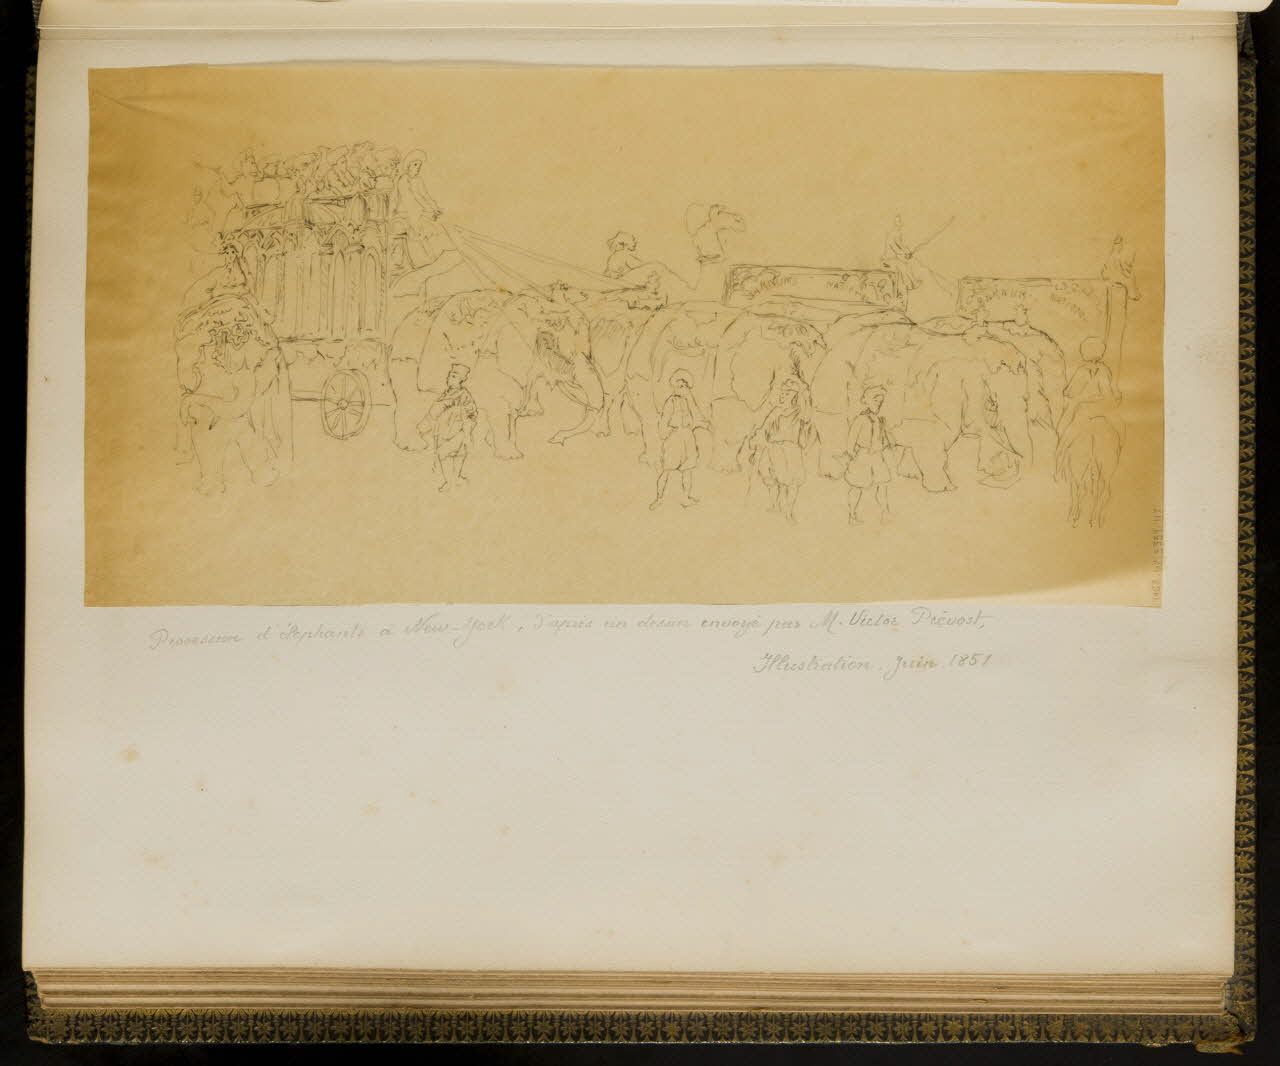 BARNUM'S NATIONAL
BARNUM
NATIONAL
Procession d'éléphants à New-York, d'après un dessin envoyé par M. Victor Prévost,
Illustration. Juin 1851